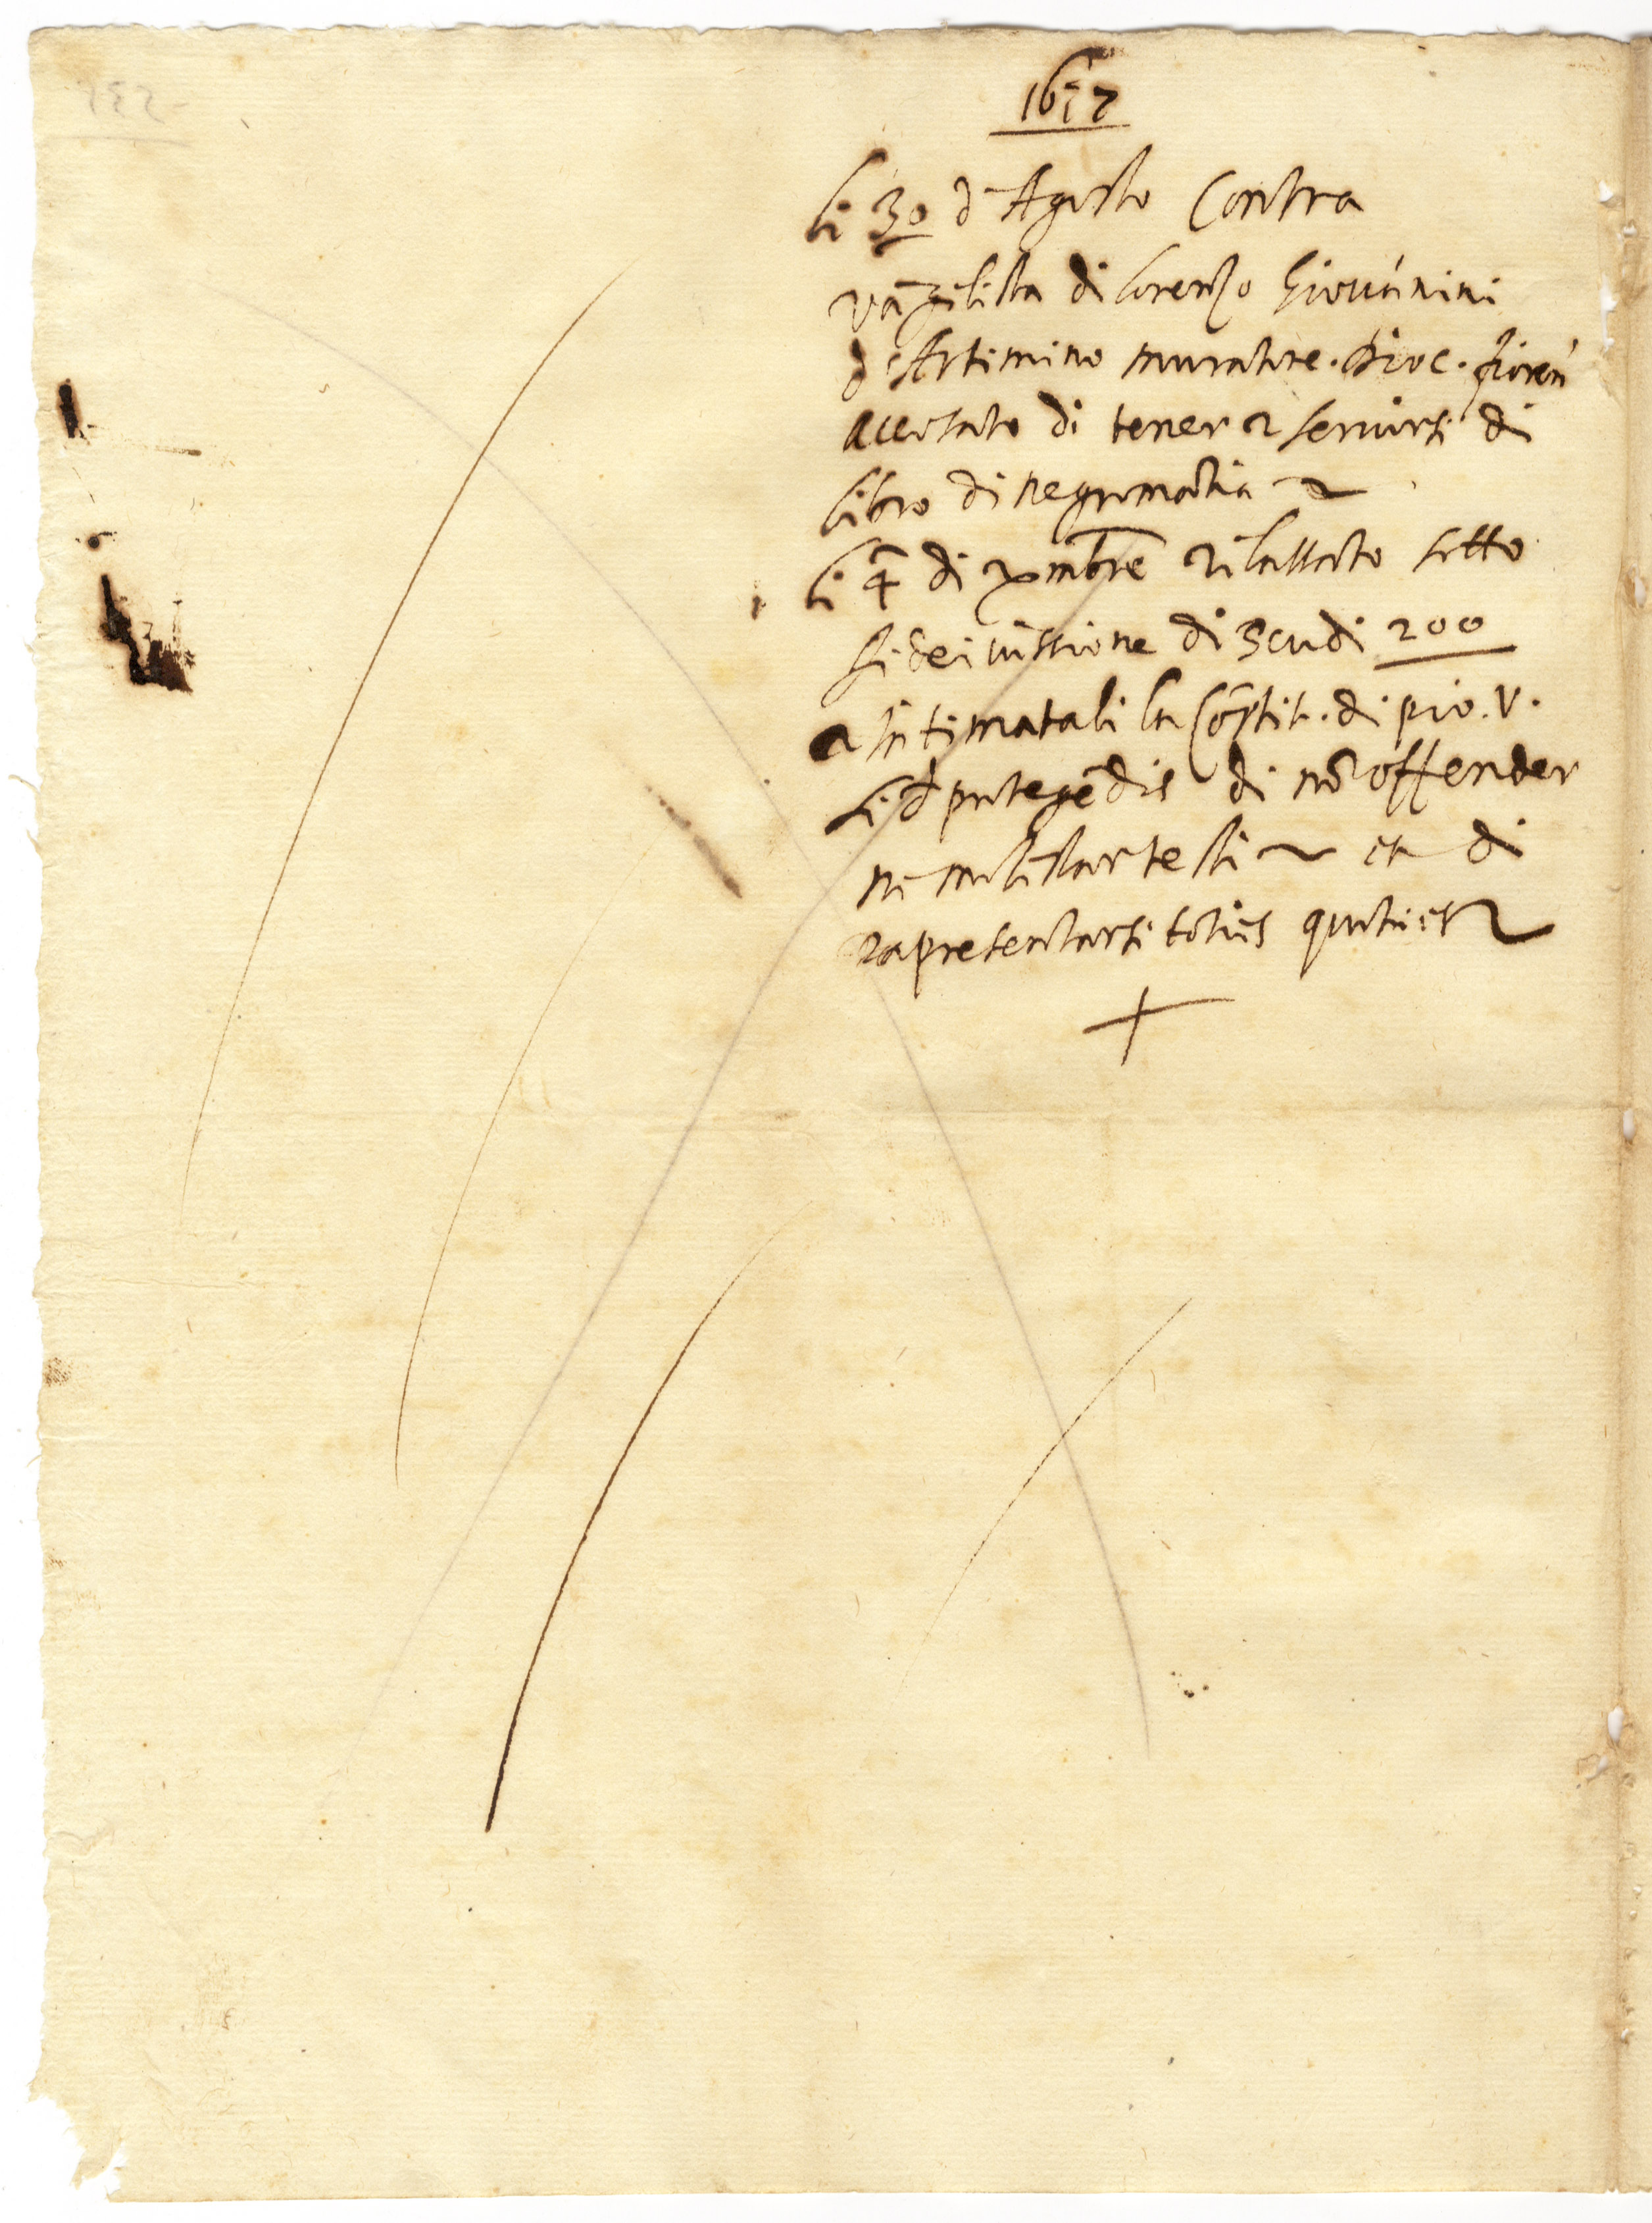 1677
li 30 d'Agosto Contra
Vāgilista di Lorenzo Giouānini
d'Artimino muratore. Dioc. fioren
accusato di tener e seruirsi di
libro di negromātia
li 4 di Xmbre rilassato sotto
fideiussione di scudi 200
e intimatali la Cōstit. di pio. V.
Si de protegēdis di nō offender
ne molestar testi et di
rapresentarsi toties quoties